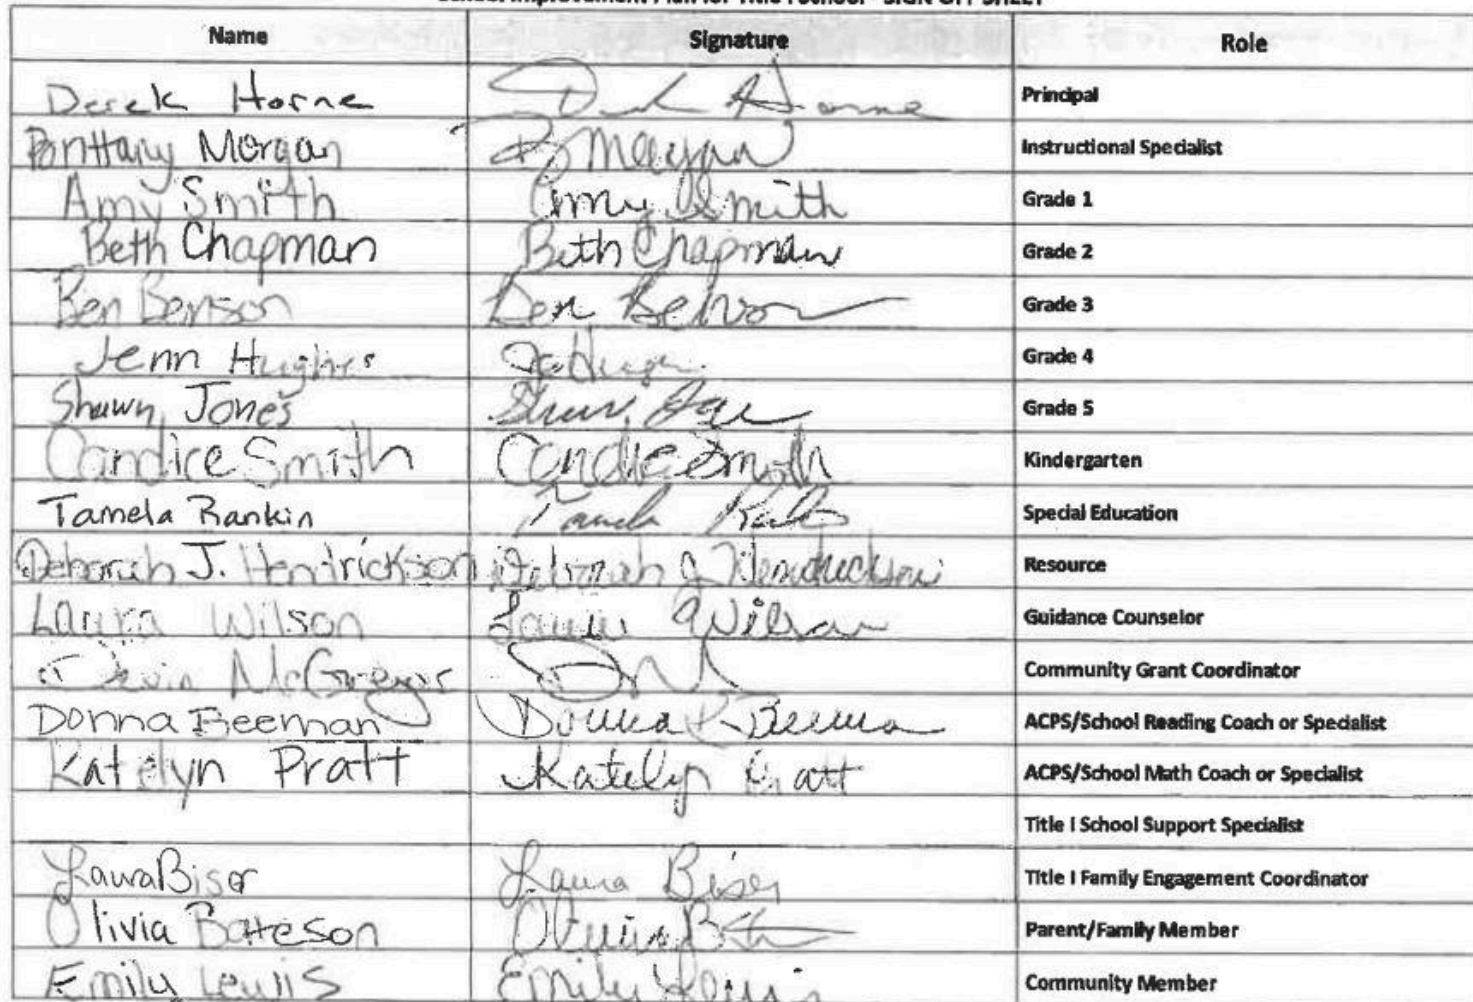 School Improvement Plan for Title I School - SIGN OFF SHEET
Name Signature Role
Derek Horne Derek Horne Principal
Brittany Morgan B Morgan Instructional Specialist
Amy Smith Amy Smith Grade 1
Beth Chapman Beth Chapman Grade 2
Ben Benson Ben Benson Grade 3
Jenn Hughes Grade 4
Shawn Jones Shawn Grade 5
Candice Smith Candice Smith Kindergarten
Tamela Rankin Tamela Special Education
Deborah J. Hendrickson Deborah J Hendrickson Resource
Laura Wilson Laura Wilson Guidance Counselor
McGregor Community Grant Coordinator
Donna Beeman Donna R Beeman ACPS/School Reading Coach or Specialist
Katelyn Pratt Katelyn Pratt ACPS/School Math Coach or Specialist
Title I School Support Specialist
Laura Biser Laura Biser Title I Family Engagement Coordinator
Olivia Bateson Olivia Parent/Family Member
Emily Lewis Emily Lewis Community Member